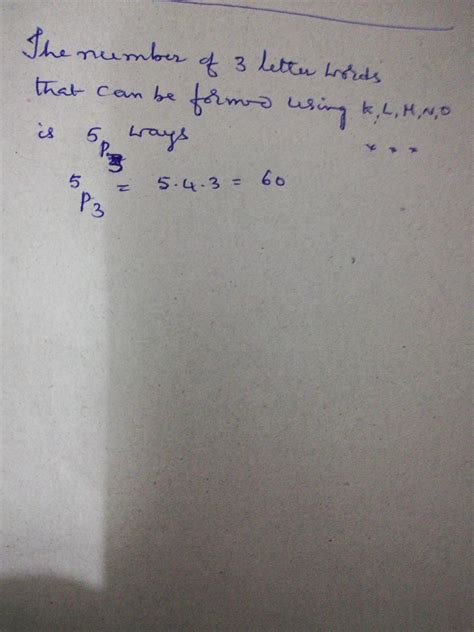 The number of 3 letter words
that can be formed using K, L, M, N, O
is 5P3 ways
5P3 = 5.4.3 = 60